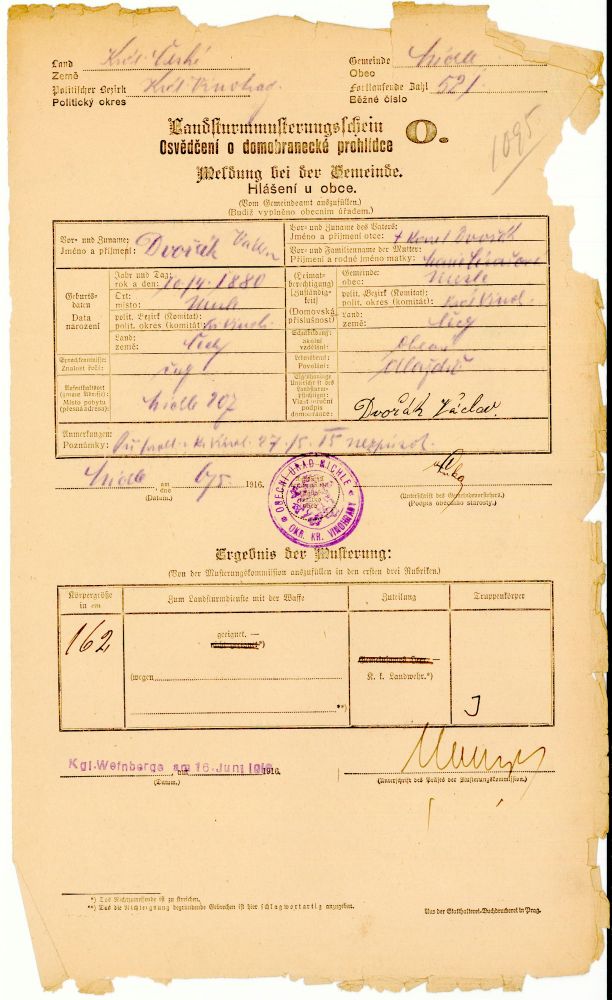 Land
Země
Král. České
Gemeinde
Obec
Michle
Politischer Bezirk
Politický okres
Král. Vinohrady
Fortlaufende Zahl
Běžné číslo
521
1095
Landsturmmusterungsschein
Osvědčení o domobranecké prohlídce
O.
Meldung bei der Gemeinde.
Hlášení u obce.
(Vom Gemeindeamt auszufüllen.)
(Budiž vyplněno obecním úřadem.)
Vor- und Zuname:
Jméno a příjmení:
Dvořák
Vor- und Zuname des Vaters:
Jméno a příjmení otce:
† Karel Dvořák
Vor- und Familienname der Mutter:
Příjmení a rodné jméno matky:
Geburts-
daten
Data
narození
Jahr und Tag:
rok a den:
10/4. 1880
Ort:
místo:
polit. Bezirk (Komitat):
polit. okres (komitát):
Land:
země:
Čechy
(Heimat-
berechtigung)
(Zuständig-
keit)
(Domovská
příslušnost)
Gemeinde:
obec:
polit. Bezirk (Komitat):
polit. okres (komitát):
Land:
země:
Čechy
Sprachkenntnisse:
Znalost řečí:
Schulbildung:
školní
vzdělání:
Lebensberuf:
Povolání:
Aufenthaltsort
(genaue Adresse):
Místo pobytu
(přesná adresa):
Michle 207
Eigenhändige
Unterschrift des
Landsturm-
pflichtigen:
Vlastnoruční
podpis
domobrance:
Dvořák Václav.
Anmerkungen:
Poznámky:
Michle
am
dne
6/5.
1916.
(Datum.)
OBECNÍ ÚŘAD MICHLE
OKR. KR. VINOHRADY
(Unterschrift des Gemeindevorstehers.)
(Podpis obecního starosty.)
Ergebnis der Musterung:
(Von der Musterungskommission auszufüllen in den ersten drei Rubriken.)
Körpergröße
in cm
Zum Landsturmdienste mit der Waffe
Zuteilung
Truppenkörper
162
geeignet. —
*)
(wegen
**)
K. k. Landwehr.*)
J
Kgl. Weinberge am 16. Juni 1916
am
1916.
(Datum.)
(Unterschrift des Präses der Musterungskommission.)
*) Das Nichtzutreffende ist zu streichen.
**) Das die Nichteignung begründende Gebrechen ist hier schlagwortartig anzugeben.
Aus der Statthalterei-Buchdruckerei in Prag.